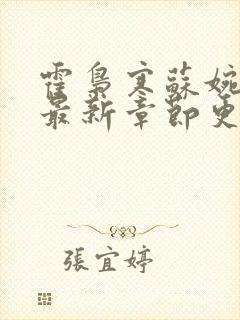 霍梟寒蘇婉
最新章節更
張宜婷